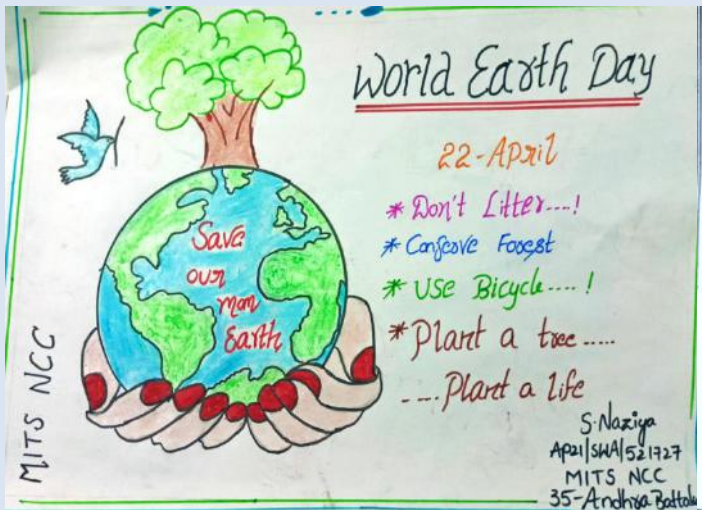 World Earth Day
22-April
* Don't Litter....!
* Conserve Forest
* Use Bicycle....!
* Plant a tree.....
....Plant a life
Save
our
mom
Earth
MITS NCC
S.Naziya
AP21/SWA/521727
MITS NCC
35-Andhra